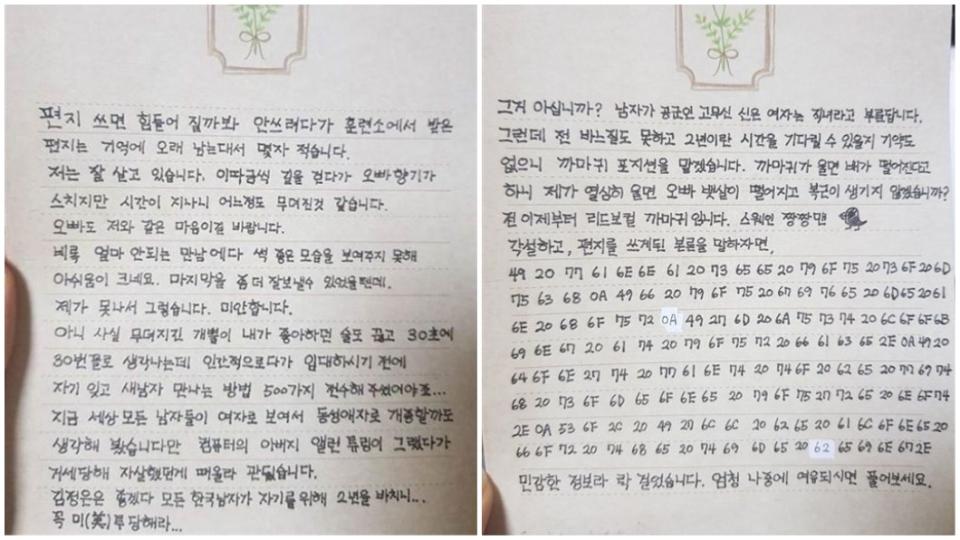 편지 쓰면 힘들어 질까봐 안쓰려다가 훈련소에서 받은
편지는 기억에 오래 남는대서 몇자 적습니다.
저는 잘 살고 있습니다. 이따금씩 길을 걷다가 오빠향기가
스치지만 시간이 지나니 어느정도 무뎌진것 같습니다.
오빠도 저와 같은 마음이길 바랍니다.
비록 얼마 안되는 만남에다 썩 좋은 모습을 보여주지 못해
아쉬움이 크네요. 마지막을 좀 더 잘보낼수 있었을텐데.
제가 못나서 그렇습니다. 미안합니다.
아니 사실 무뎌지긴 개뿔이 내가 좋아하던 술도 끊고 30초에
30번꼴로 생각나는데 인간적으로다가 입대하시기 전에
자기 잊고 새남자 만나는 방법 500가지 전수해 주셨어야죠...
지금 세상 모든 남자들이 여자로 보여서 동성애자로 개종할까도
생각해 봤습니다만 컴퓨터의 아버지 앨런 튜링이 그랬다가
거세당해 자살했던게 떠올라 관뒀습니다.
김정은은 좋겠다 모든 한국남자가 자기를 위해 2년을 바치니...
꼭 미(美)부 당해라...
그거 아십니까? 남자가 공군인 고무신 신은 여자는 직녀라고 부른답니다.
그런데 전 바느질도 못하고 2년이란 시간을 기다릴 수 있을지 기약도
없으니 까마귀 포지션을 맡겠습니다. 까마귀가 울면 배가 떨어진다고
하니 제가 열심히 울면 오빠 뱃살이 떨어지고 복근이 생기지 않겠습니까?
전 이제부터 리드보컬 까마귀입니다. 스웩인 짱짱맨
각설하고, 편지를 쓰게된 본론을 말하자면,
49 20 77 61 6E 6E 61 20 73 65 65 20 79 6F 75 20 73 6F 20 6D
75 63 68 0A 49 66 20 79 6F 75 20 67 69 76 65 20 6D 65 20 61
6E 20 68 6F 75 72 0A 49 27 6D 20 6A 75 73 74 20 6C 6F 6F 6B
69 6E 67 20 61 74 20 79 6F 75 72 20 66 61 63 65 2E 0A 49 20
64 6F 6E 27 74 20 77 61 6E 74 20 74 6F 20 62 65 20 77 69 74
68 20 73 6F 6D 65 6F 6E 65 20 79 6F 75 27 72 65 20 6E 6F 74
2E 0A 53 6F 2C 20 49 27 6C 6C 20 62 65 20 61 6C 6F 6E 65 20
66 6F 72 20 74 68 65 20 74 69 6D 65 20 62 65 69 6E 67 2E
민감한 정보라 락 걸었습니다. 엄청 나중에 여유되시면 풀어보세요.